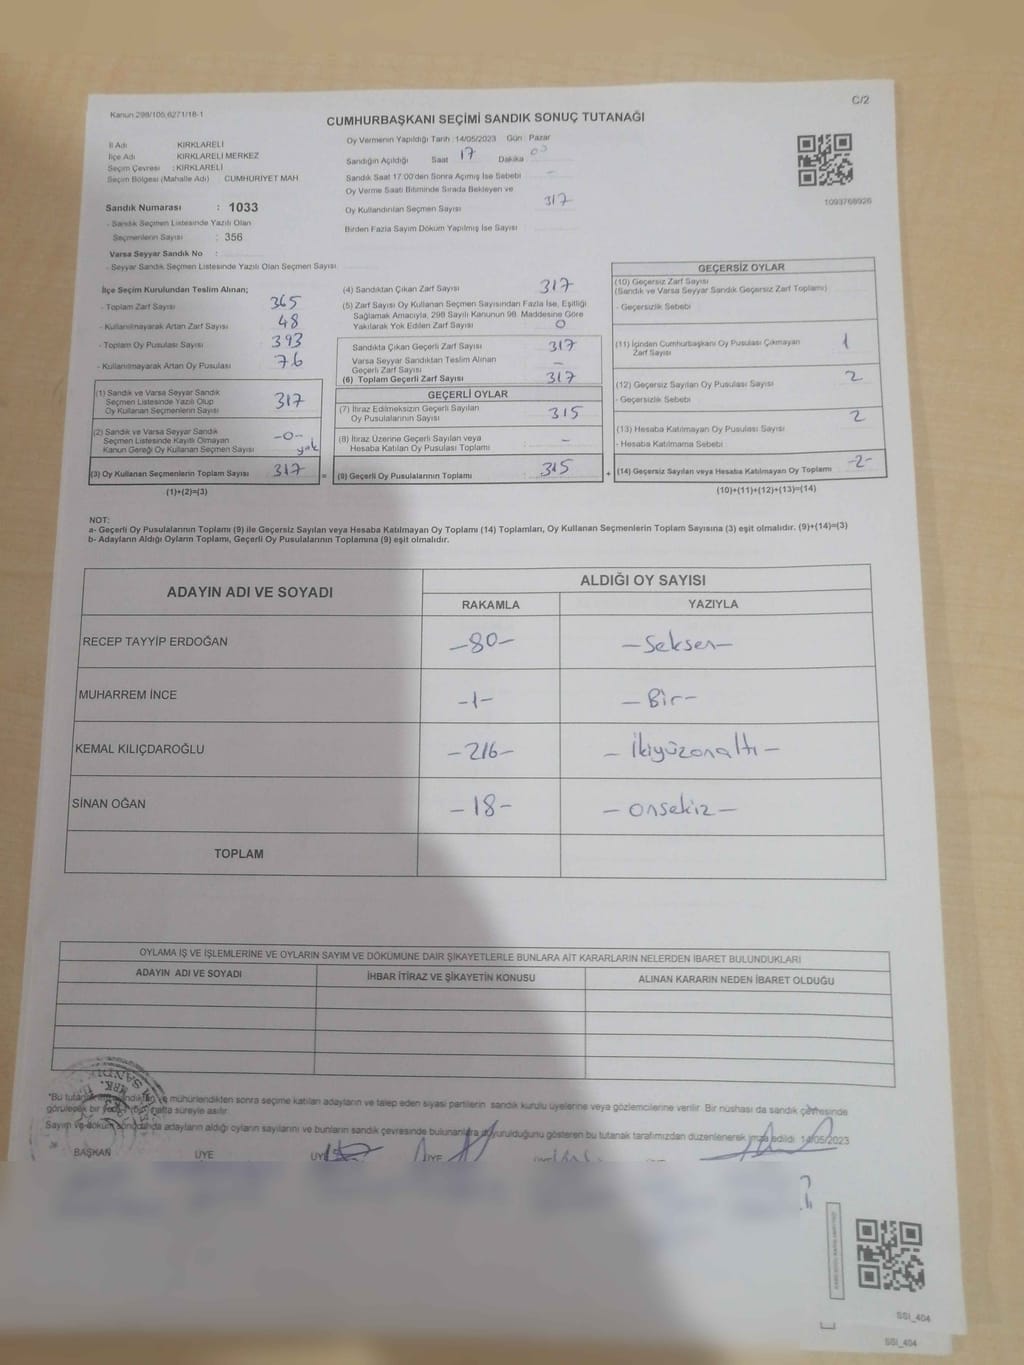 Kanun 298/105,6271/18-1
C/2
CUMHURBAŞKANI SEÇİMİ SANDIK SONUÇ TUTANAĞI
İl Adı KIRKLARELİ
İlçe Adı KIRKLARELİ MERKEZ
Seçim Çevresi : KIRKLARELİ
Seçim Bölgesi (Mahalle Adı) CUMHURİYET MAH
Sandık Numarası : 1033
- Sandık Seçmen Listesinde Yazılı Olan
Seçmenlerin Sayısı : 356
Varsa Seyyar Sandık No :
- Seyyar Sandık Seçmen Listesinde Yazılı Olan Seçmen Sayısı
Oy Vermenin Yapıldığı Tarih :14/05/2023 Gün : Pazar
Sandığın Açıldığı Saat 17 Dakika 03
Sandık Saat 17:00'den Sonra Açımış İse Sebebi -
Oy Verme Saati Bitiminde Sırada Bekleyen ve
Oy Kullandırılan Seçmen Sayısı 317
Birden Fazla Sayım Döküm Yapılmış İse Sayısı
1093768926
İlçe Seçim Kurulundan Teslim Alınan;
- Toplam Zarf Sayısı 365
- Kullanılmayarak Artan Zarf Sayısı 48
- Toplam Oy Pusulası Sayısı 393
- Kullanılmayarak Artan Oy Pusulası 76
(1) Sandık ve Varsa Seyyar Sandık
Seçmen Listesinde Yazılı Olup
Oy Kullanan Seçmenlerin Sayısı 317
(2) Sandık ve Varsa Seyyar Sandık
Seçmen Listesinde Kayıtlı Olmayan
Kanun Gereği Oy Kullanan Seçmen Sayısı -0- yok
(3) Oy Kullanan Seçmenlerin Toplam Sayısı 317 =
(1)+(2)=(3)
(4) Sandıktan Çıkan Zarf Sayısı 317
(5) Zarf Sayısı Oy Kullanan Seçmen Sayısından Fazla İse, Eşitliği
Sağlamak Amacıyla, 298 Sayılı Kanunun 98. Maddesine Göre
Yakılarak Yok Edilen Zarf Sayısı 0
Sandıkta Çıkan Geçerli Zarf Sayısı 317
Varsa Seyyar Sandıktan Teslim Alınan
Geçerli Zarf Sayısı -
(6) Toplam Geçerli Zarf Sayısı 317
GEÇERLİ OYLAR
(7) İtiraz Edilmeksizin Geçerli Sayılan
Oy Pusulalarının Sayısı 315
(8) İtiraz Üzerine Geçerli Sayılan veya
Hesaba Katılan Oy Pusulası Toplamı : -
(9) Geçerli Oy Pusulalarının Toplamı : 315 +
GEÇERSİZ OYLAR
(10) Geçersiz Zarf Sayısı
(Sandık ve Varsa Seyyar Sandık Geçersiz Zarf Toplamı)
- Geçersizlik Sebebi
(11) İçinden Cumhurbaşkanı Oy Pusulası Çıkmayan
Zarf Sayısı 1
(12) Geçersiz Sayılan Oy Pusulası Sayısı 2
- Geçersizlik Sebebi
(13) Hesaba Katılmayan Oy Pusulası Sayısı 2
- Hesaba Katılmama Sebebi
(14) Geçersiz Sayılan veya Hesaba Katılmayan Oy Toplamı -2-
(10)+(11)+(12)+(13)=(14)
NOT:
a- Geçerli Oy Pusulalarının Toplamı (9) ile Geçersiz Sayılan veya Hesaba Katılmayan Oy Toplamı (14) Toplamları, Oy Kullanan Seçmenlerin Toplam Sayısına (3) eşit olmalıdır. (9)+(14)=(3)
b- Adayların Aldığı Oyların Toplamı, Geçerli Oy Pusulalarının Toplamına (9) eşit olmalıdır.
ADAYIN ADI VE SOYADI
ALDIĞI OY SAYISI
RAKAMLA YAZIYLA
RECEP TAYYİP ERDOĞAN -80- -Seksen-
MUHARREM İNCE -1- -Bir-
KEMAL KILIÇDAROĞLU -216- -İkiyüzonaltı-
SİNAN OĞAN -18- -onsekiz-
TOPLAM
OYLAMA İŞ VE İŞLEMLERİNE VE OYLARIN SAYIM VE DÖKÜMÜNE DAİR ŞİKAYETLERLE BUNLARA AİT KARARLARIN NELERDEN İBARET BULUNDUKLARI
ADAYIN ADI VE SOYADI İHBAR İTİRAZ VE ŞİKAYETİN KONUSU ALINAN KARARIN NEDEN İBARET OLDUĞU
mühürlendikten sonra seçime katılan adayların ve talep eden siyasi partilerin sandık kurulu üyelerine veya gözlemcilerine verilir. Bir nüshası da sandık çevresinde
görülecek bir hafta süreyle asılır.
Sayım ve döküm sonucunda adayların aldığı oyların sayılarını ve bunların sandık çevresinde bulunanlara duyurulduğunu gösteren bu tutanak tarafımızdan düzenlenerek imza edildi. 14/05/2023
BAŞKAN ÜYE ÜYE ÜYE
SSI_404
SSI_404